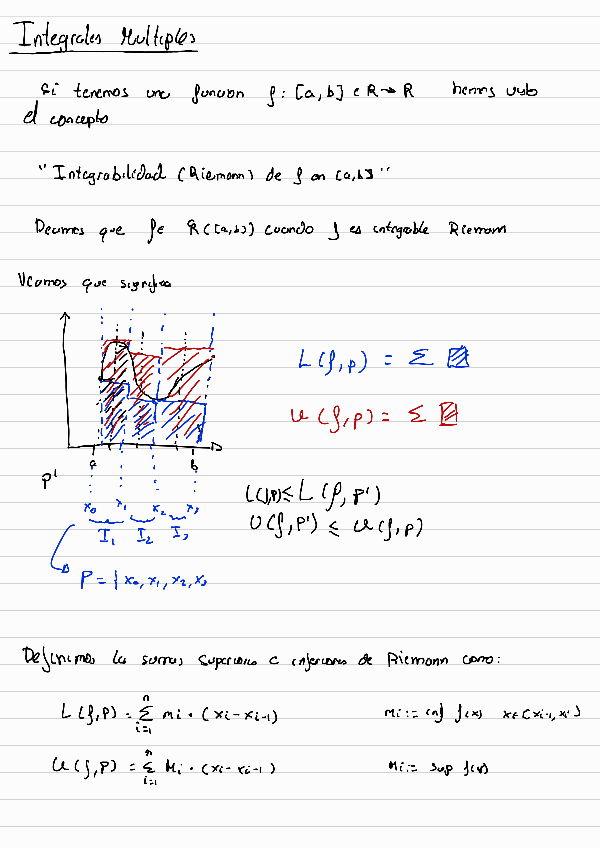 Integrales Multiples
Si tenemos una funcion f: [a, b] c R → R hemos visto
el concepto
"Integrabilidad (Riemann) de f en [a,b]"
Decimos que f ∈ R([a,b]) cuando f es integrable Riemann
Veamos que significa
L(f,p) = Σ
U(f,p) = Σ
P' a b
L(f,p) ≤ L(f, p')
U(f,p') ≤ U(f,p)
x₀ x₁ x₂ x₃
I₁ I₂ I₃
P = { x₀, x₁, x₂, x₃
Definimos las sumas superiores e inferiores de Riemann como:
L(f,P) = Σ i=1 n mi · (xi - xi-1) mi := inf f(x) x ∈ (xi-1, xi)
U(f,P) = Σ i=1 n Mi · (xi - xi-1) Mi := sup f(x)